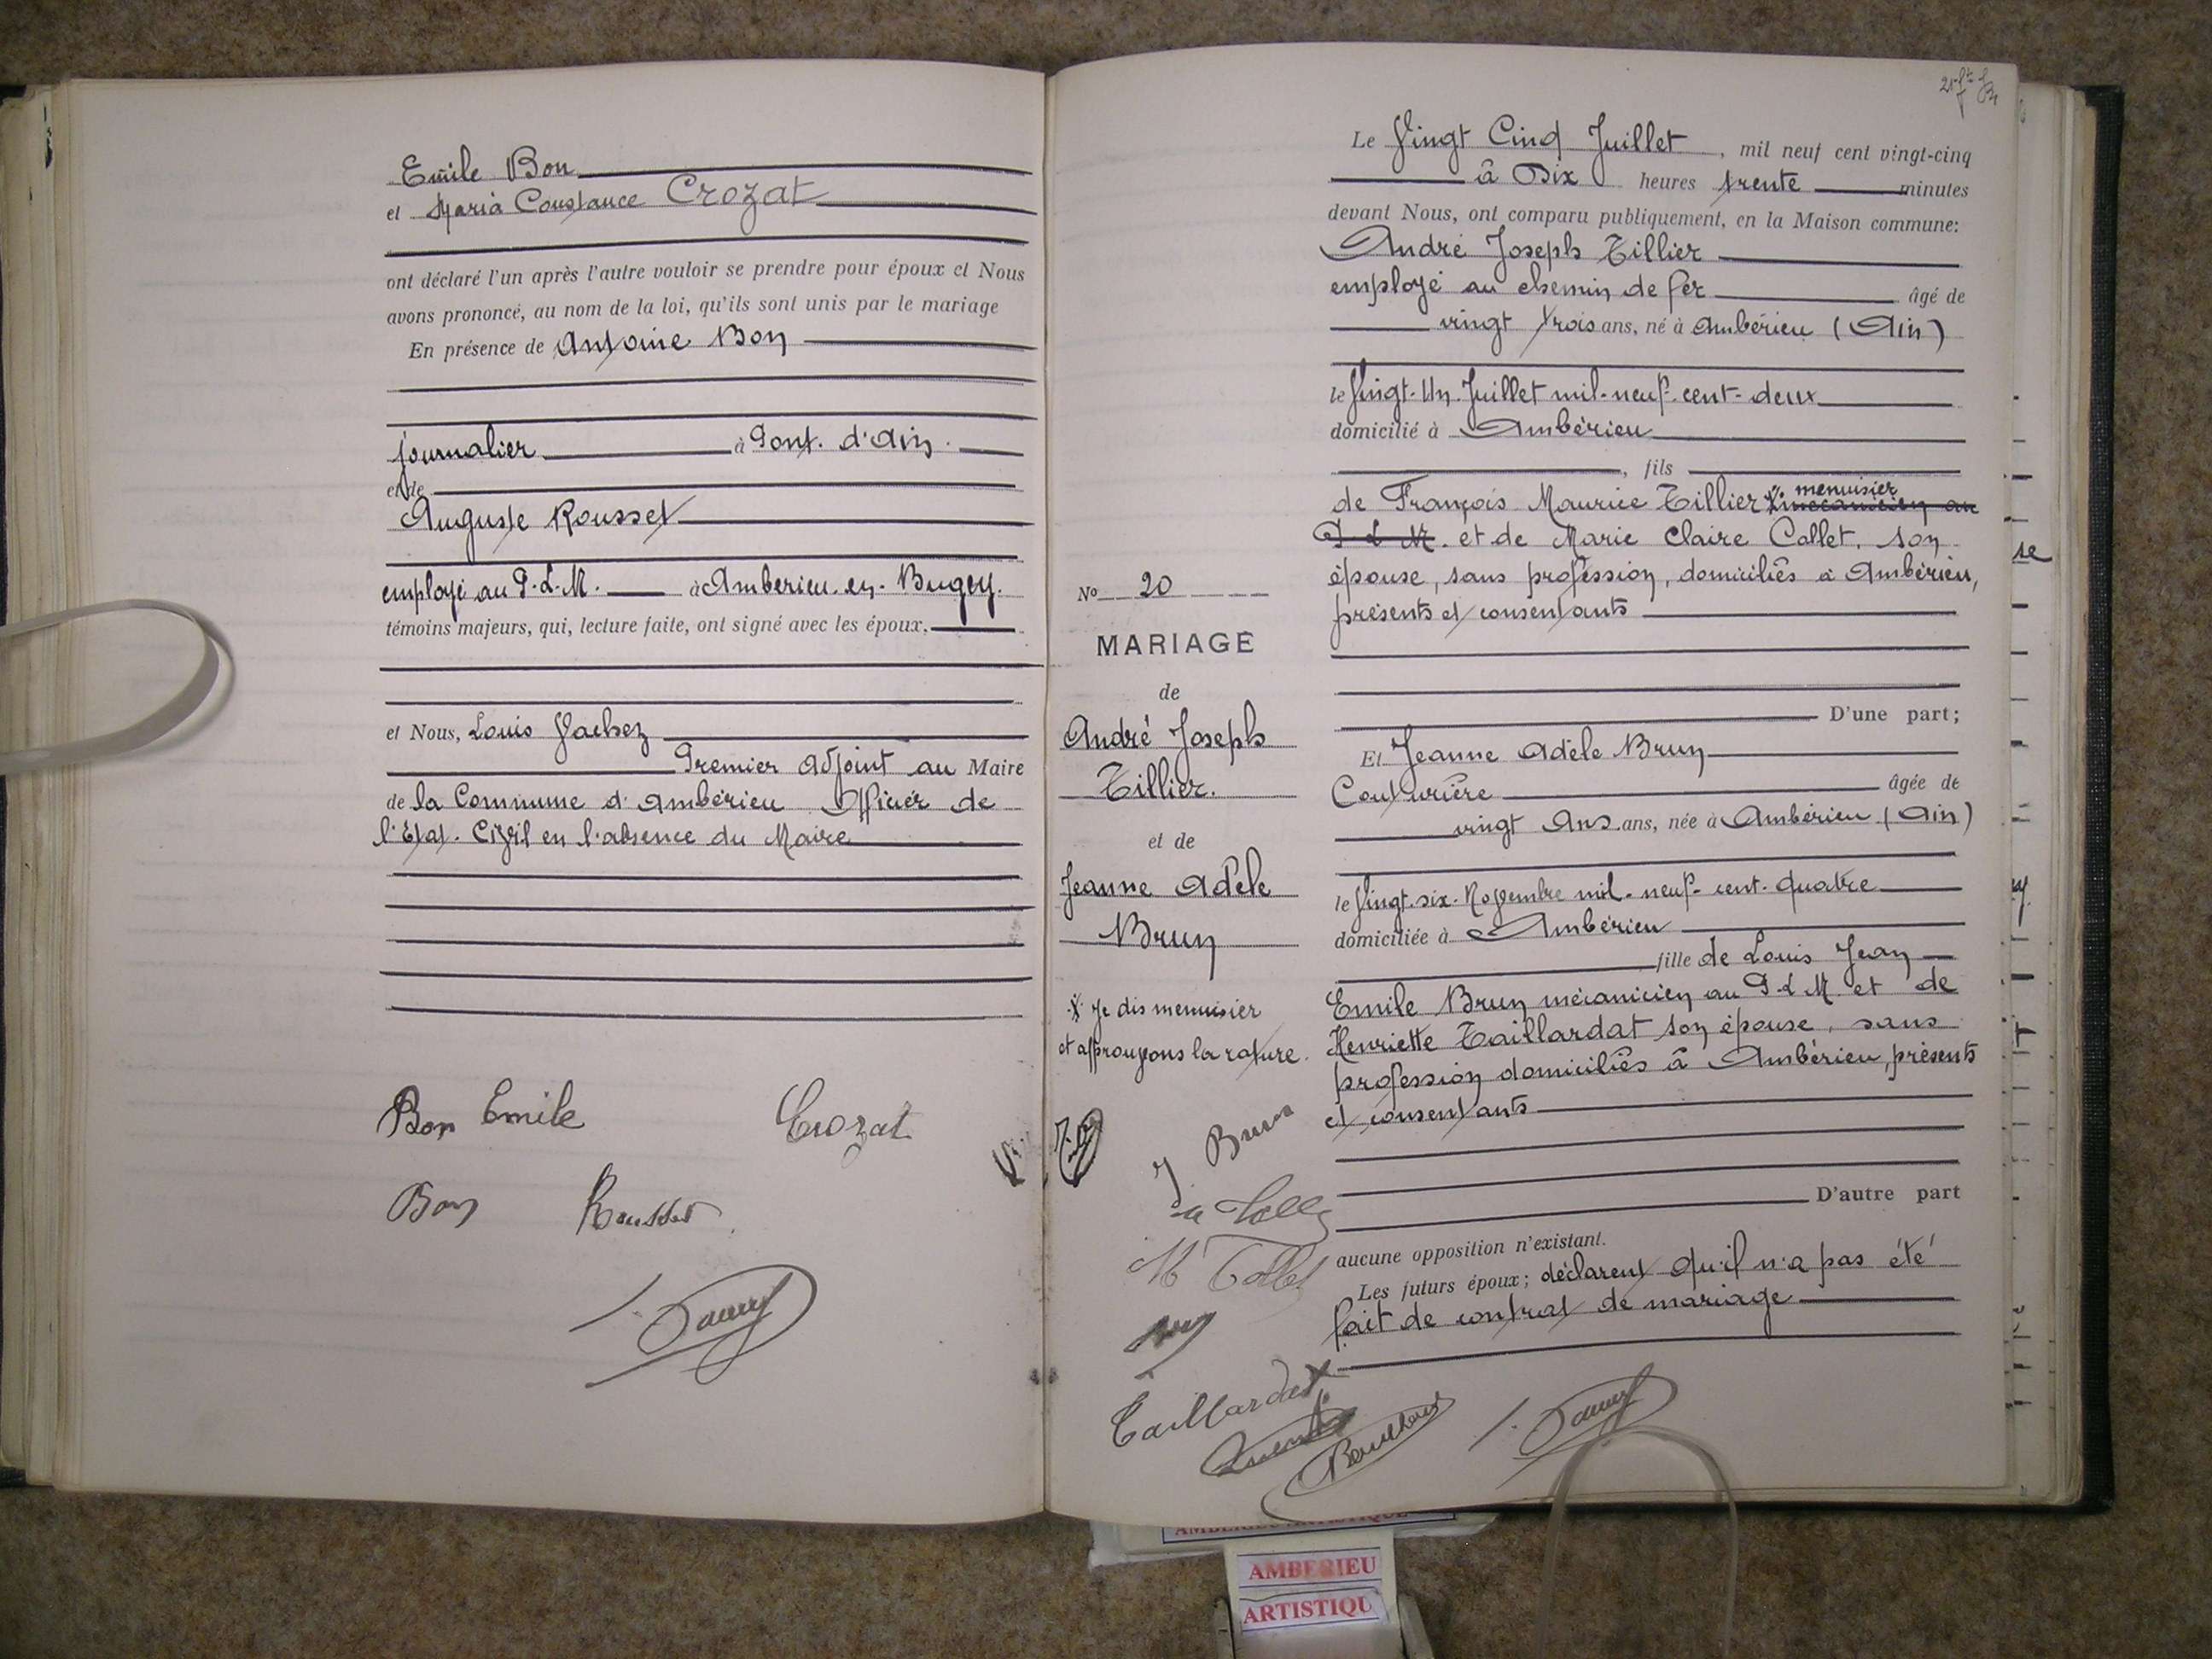 Emile Bon
et Maria Constance Crozat
ont déclaré l'un après l'autre vouloir se prendre pour époux et Nous
avons prononcé, au nom de la loi, qu'ils sont unis par le mariage
En présence de Antoine Bon
journalier à Pont. d'Ain.
et de
Auguste Rousset
employé au P.L.M. à Ambérieu. en. Bugey.
témoins majeurs, qui, lecture faite, ont signé avec les époux,
et Nous, Louis Vachez
Premier Adjoint au Maire
de la Commune d'Ambérieu Officier de
l'Etat. Civil en l'absence du Maire
Bon Emile Crozat
Bon Rousset
21
Le Vingt Cinq Juillet, mil neuf cent vingt-cinq
à Dix heures trente minutes
devant Nous, ont comparu publiquement, en la Maison commune:
André Joseph Tillier
employé au chemin de fer âgé de
vingt trois ans, né à Ambérieu (Ain)
le Vingt-Un Juillet mil-neuf-cent-deux
domicilié à Ambérieu
, fils
de François Maurice Tillier menuisier mécanicien au
P L M. et de Marie Claire Collet, son
épouse, sans profession, domiciliés à Ambérieu,
présents et consentants
D'une part;
Et Jeanne Adèle Brun
Couturière âgée de
vingt Ans ans, née à Ambérieu (Ain)
le Vingt-six-Novembre mil-neuf-cent-quatre
domiciliée à Ambérieu
fille de Louis Jean
Emile Brun mécanicien au P L M et de
Henriette Taillardat son épouse, sans
profession domiciliés à Ambérieu, présents
et consentants
D'autre part
aucune opposition n'existant.
Les futurs époux; déclarent qu'il n'a pas été
fait de contrat de mariage
No 20
MARIAGE
de
André Joseph
Tillier.
et de
Jeanne Adèle
Brun
Je dis menuisier
et approuvons la rature.
J Brun
M Collet
Taillardat
AMBERIEU
ARTISTIQU